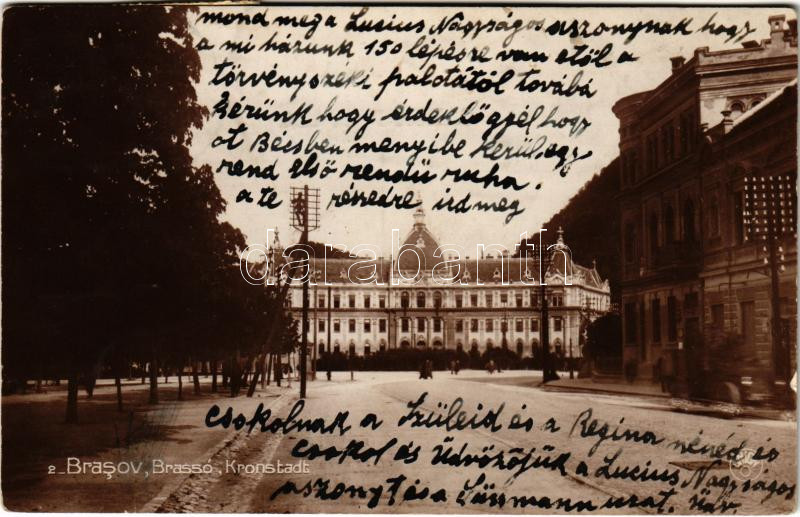 mond meg a Lucius Nagyságos asszonynak hogy
a mi házunk 150 lépésre van ettől a
törvényszéki palotától továbá
kérünk hogy érdeklőgyél hogy
ot Bécsben menyibe kerül egy
rend első rendü ruha.
a te részedre ird meg
darabanth
csokolnak a Szüleid és a Regina nénéd és
csokol és Üdvözöjük a Lucius Nagyságos
asszonyt és a Süssmann urat. Üdv.
2_ Braşov, Brassó, Kronstadt